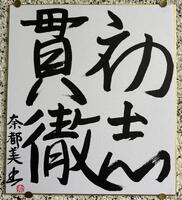 初志
貫徹
奈都美